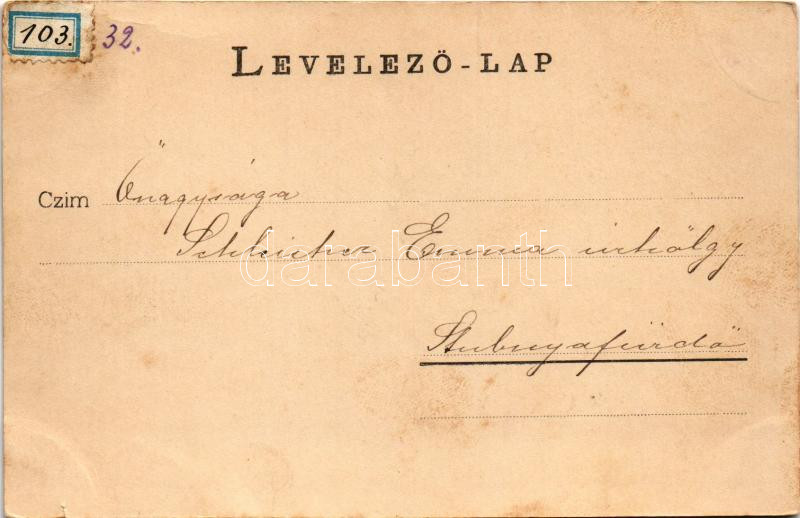 103.
32.
LEVELEZŐ-LAP
Czim Őnagysága
Emma úrhölgy
Stubnyafürdő
darabanth